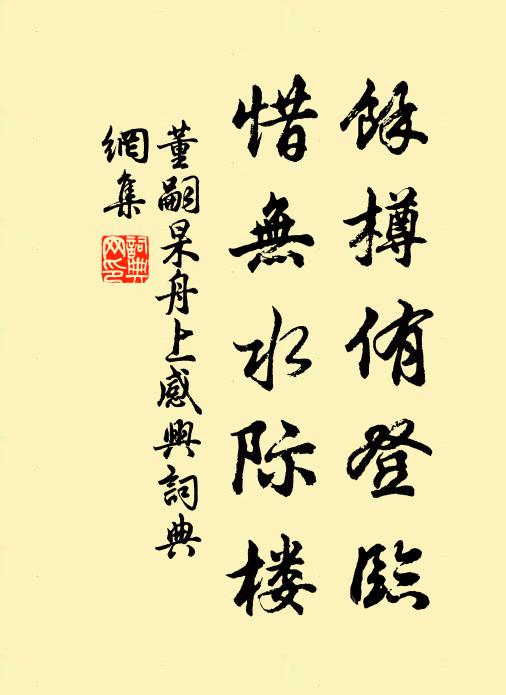 餘樽侑登臨
惜無水际楼
董嗣杲舟上感興詞典
網集
詞典网印